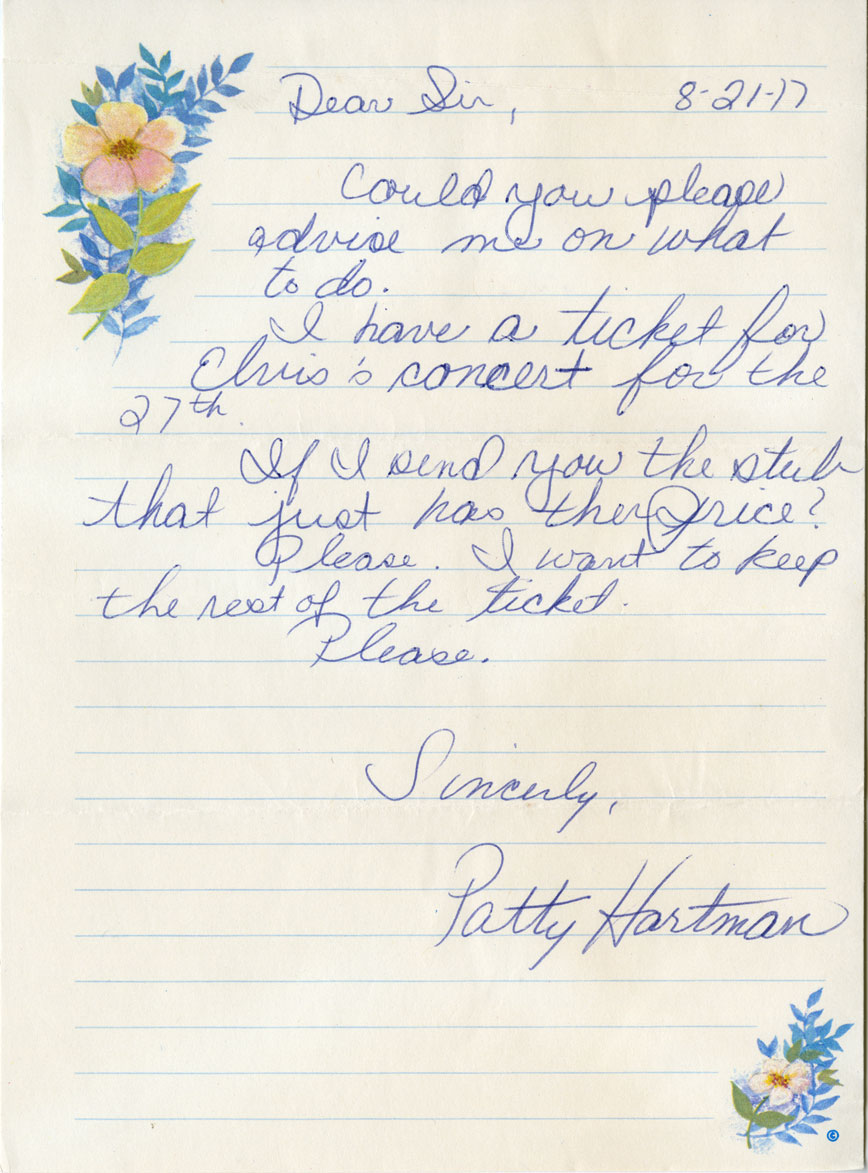 Dear Sir, 8-21-77
Could you please
advise me on what
to do.
I have a ticket for
Elvis's concert for the
27th.
If I send you the stub
that just has the price?
Please. I want to keep
the rest of the ticket.
Please.
Sincerly,
Patty Hartman
©